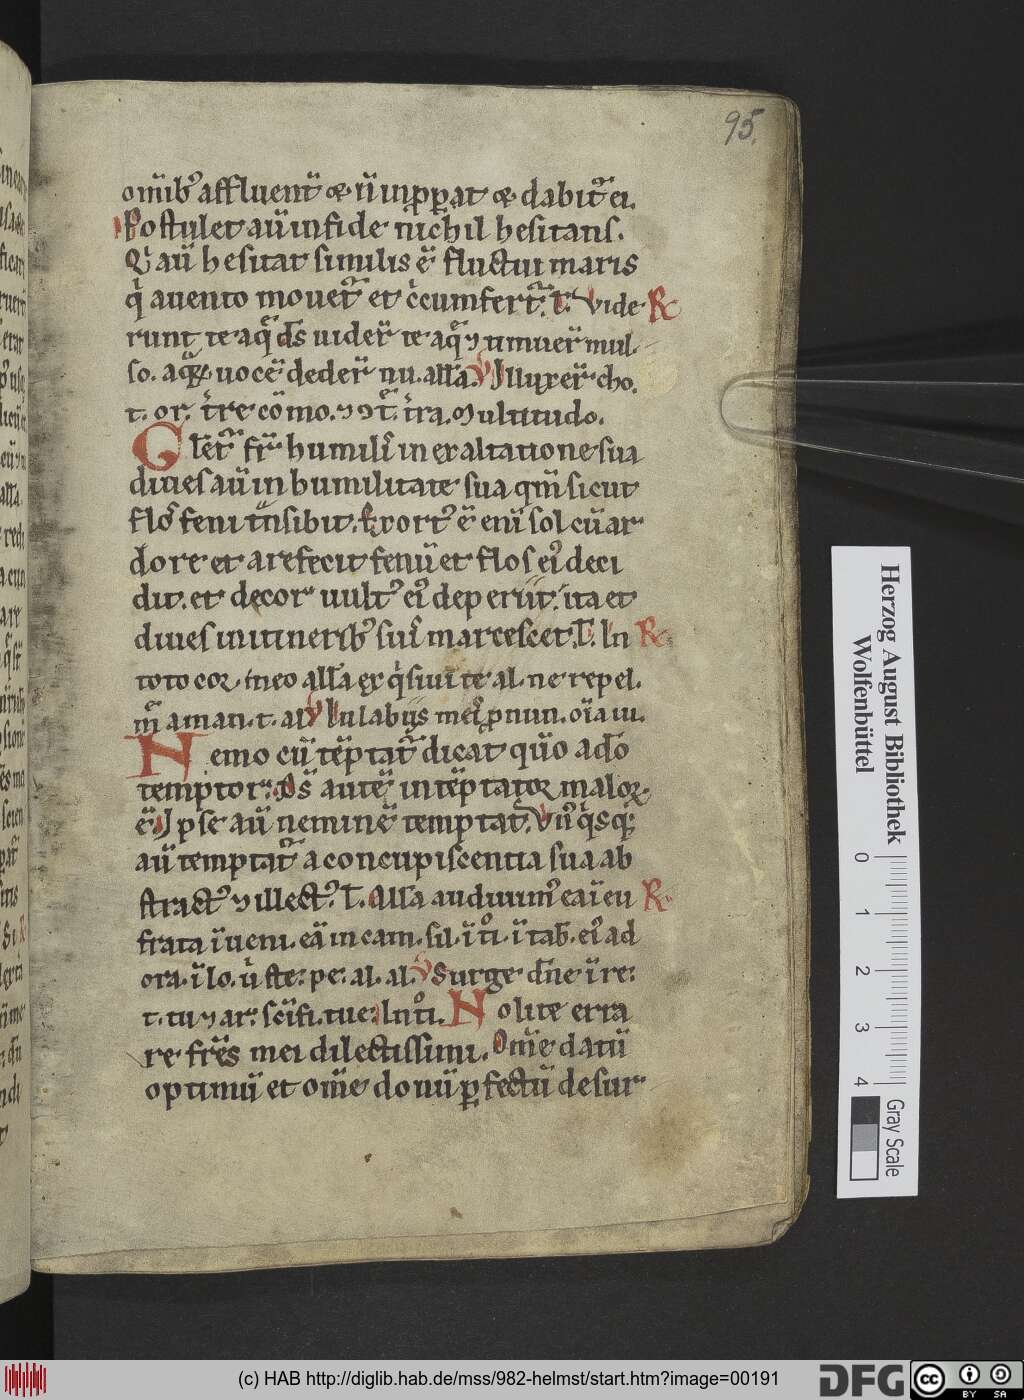 95.
omib᷒ affluent̄ & n̄ inpꝑat & dabit᷒ ei.
Postulet aū in fide nichil hesitans.
Q̇ aū hesitat similis ē fluctui maris
q̇ a uento mouet᷒ et c̊cumfert᷒. T̄. Vide R
runt te aq̄ ds̄ uider̄ te aq̄ ⁊ timuer̄ mul
so. aqꝝ uocē deder̄ nu. all̄a. V Illuxer̄ cho.
t. or. t̄re cōmo. ⁊ ɔt̄. t̄ra. Multitudo.
Gl̄et᷒ fr̄ humilī in exaltatione sua
diues aū in humilitate sua qm̄ sicut
flos feni t̄nsibit. Exort᷒ ē enī sol cū ar
dore et arefecit fenū et flos ei᷒ deci
dit. et decor uult᷒ ei᷒ deperiit. ita et
diues in itinerib᷒ suis marcescet. T̄. In R
toto coꝛ. meo all̄a exq̇siui te al. ne repel.
m̄ a man. t. al V In labijs mei᷒ ꝓnun. oīa iu.
Nemo cū tēptat᷒ dicat qūo a dō
temptor: Ds̄ autē intēptator maloꝝ
ē. Ipse aū neminē temptat. Vn᷒q̇sqꝫ
aū temptat᷒ a concupiscentia sua ab
stract᷒ ⁊ illect᷒. T̄. All̄a audiuim᷒ eā ī eu R
frata īueni. eā in cam. sil. ītī. ī tab. ei᷒ ad
ora. ī lo. u̇ ste: pe. al. al. V Surge dn̄e ī re:
t. tu ⁊ ar: scīfi. tue: Intī. Nolite erra
re frēs mei dilectissimi. Om̄e datū
optimū et om̄e donū ꝑfectū desur
Herzog August Bibliothek
Wolfenbüttel
0 1 2 3 4
Gray Scale
(c) HAB http://diglib.hab.de/mss/982-helmst/start.htm?image=00191
DFG
cc BY SA